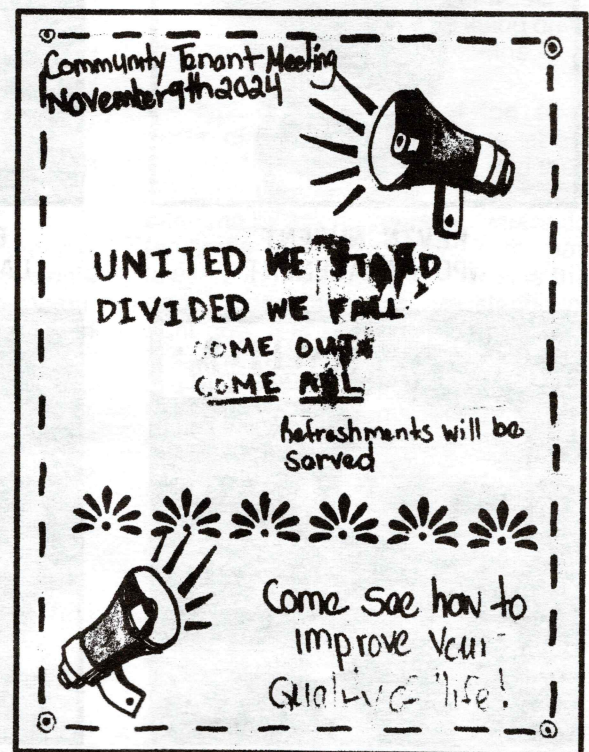 Community Tenant Meeting
November 9th 2024
UNITED WE STAND
DIVIDED WE FALL
COME OUT
COME ALL
Refreshments will be
served
Come see how to
improve your
Quality of life!